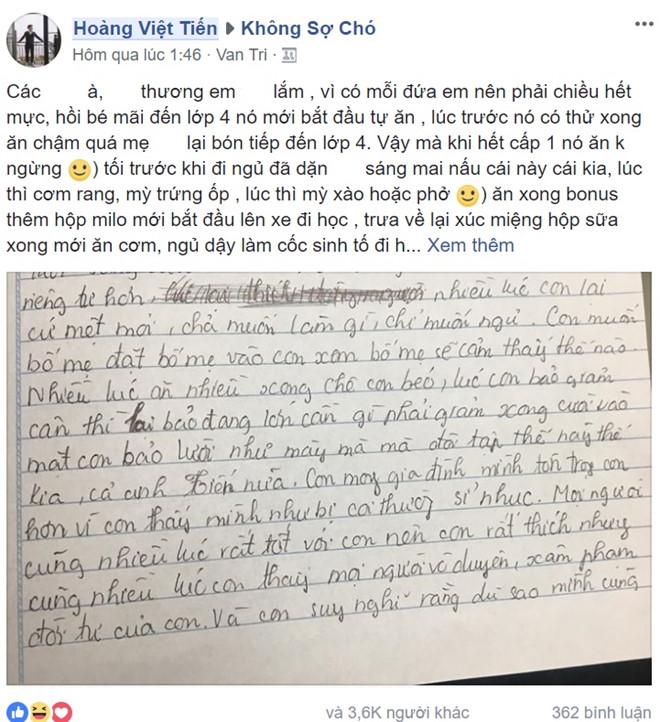 Hoàng Việt Tiến ▶ Không Sợ Chó
Hôm qua lúc 1:46 · Van Tri ·
Các à, thương em lắm , vì có mỗi đứa em nên phải chiều hết
mực, hồi bé mãi đến lớp 4 nó mới bắt đầu tự ăn , lúc trước nó có thử xong
ăn chậm quá mẹ lại bón tiếp đến lớp 4. Vậy mà khi hết cấp 1 nó ăn k
ngừng 🙂) tối trước khi đi ngủ đã dặn sáng mai nấu cái này cái kia, lúc
thì cơm rang, mỳ trứng ốp , lúc thì mỳ xào hoặc phở 🙂) ăn xong bonus
thêm hộp milo mới bắt đầu lên xe đi học , trưa về lại xúc miệng hộp sữa
xong mới ăn cơm, ngủ dậy làm cốc sinh tố đi h... Xem thêm
riêng tư hơn, nhiều lúc con lai
cứ mệt mỏi, chả muốn làm gì, chỉ muốn ngủ. Con muốn
bố mẹ đặt bố mẹ vào con xem bố mẹ sẽ cảm thấy thế nào
Nhiều lúc ăn nhiều xong chê con béo, lúc con bảo giảm
cân thì lại bảo đang lớn cần gì phải giảm xong cười vào
mặt con bảo lười như mày mà mà đòi tập thế này thế
kia, cả anh Tiến nữa. Con mong gia đình mình tôn trọng con
hơn vì con thấy mình như bị coi thường sỉ nhục. Mọi người
cũng nhiều lúc rất tốt với con nên con rất thích nhưng
cũng nhiều lúc con thấy mọi người vô duyên, xâm phạm
đời tư của con. Và con suy nghĩ rằng dù sao mình cũng
và 3,6K người khác 362 bình luận